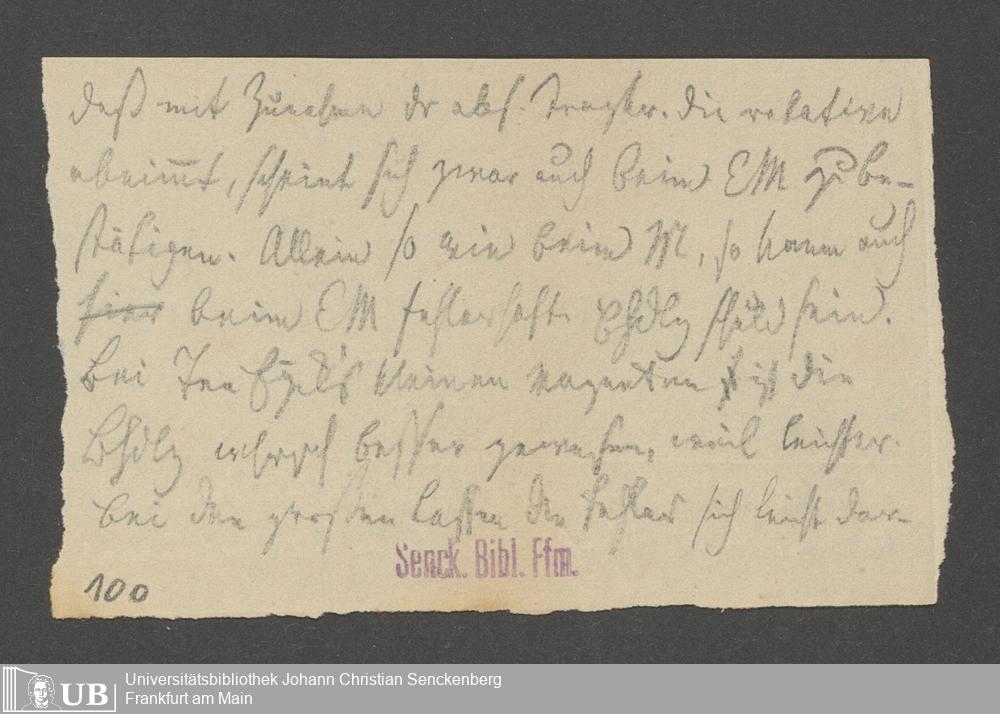 daß mit Zunahme dr abs. Tragkr. die relative
abnimmt, scheint sich zwar auch beim EM zu be-
stätigen. Allein so wie beim M, so kann auch
hier beim EM fehlerhafte Bhdlg schuld sein.
Bei den kleinen Magneten ist die
Bhdlg besser gewesen, weil leichter.
Bei den großen lassen die Fehler sich leicht dar-
Senck. Bibl. Ffm.
100
UB
Universitätsbibliothek Johann Christian Senckenberg
Frankfurt am Main